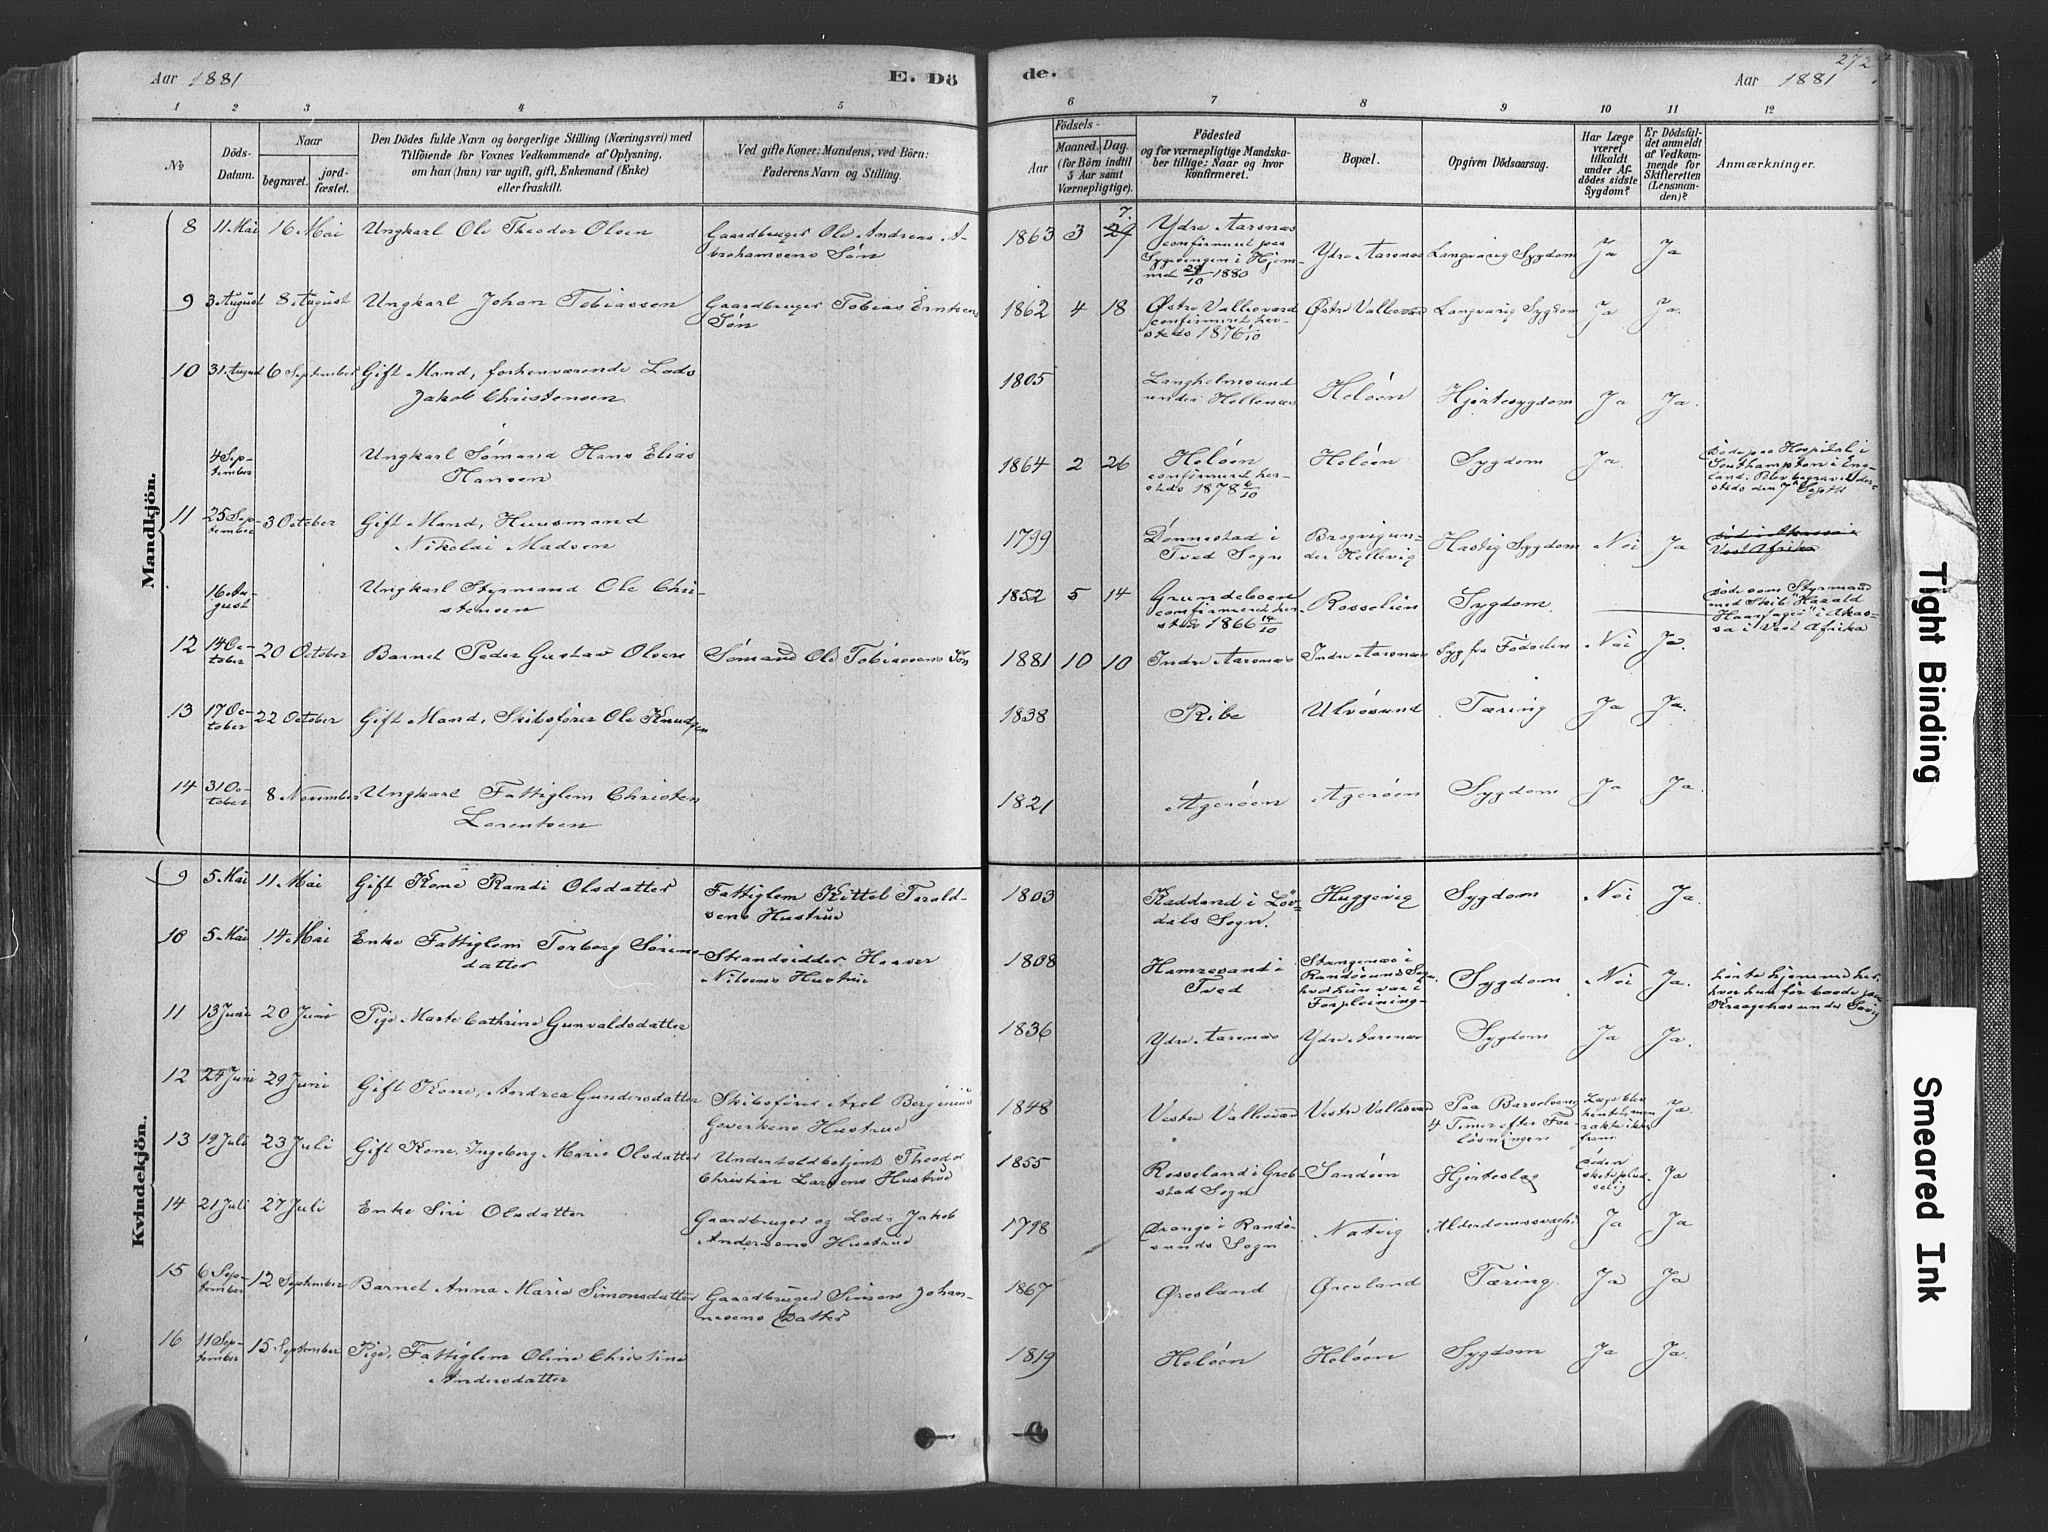 Aar 1881
E. Dö
de.
Aar 1881
272
1 2 3 4 5 6 7 8 9 10 11 12
No
Döds-Datum.
Naar
begravet.
jordfæstet.
Den Dödes fulde Navn og borgerlige Stilling (Næringsvei) med
Tilföiende for Voxnes Vedkommende af Oplysning,
om han (hun) var ugift, gift, Enkemand (Enke)
eller fraskilt.
Ved gifte Koner: Mandens, ved Börn:
Faderens Navn og Stilling.
Födsels-
Aar
Maaned. Dag.
(for Börn indtil
5 Aar samt
Værnepligtige).
Födested
og for værnepligtige Mandska-
ber tillige: Naar og hvor
konfirmeret.
Bopæl.
Opgiven Dödsaarsag.
Har Læge
været
tilkaldt
under Af-
dödes sidste
Sygdom?
Er Dödsfal-
det anmeldt
af Vedkom-
mende for
Skifteretten
(Lensman-
den)?
Anmærkninger.
Mandkjön.
8 11 Mai 16 Mai Ungkarl Ole Theodor Olsen Gaardbruger Ole Andreas A-
brahamsens Sön
1863 3 7. 29 Ydre Aarsnæs
confirmeret paa
Sygesengen i Hjem-
met 24/10 1880
Ydre Aarsnæs Langvarig Sygdom Ja Ja
9 3 August 8 August Ungkarl Johan Tobiassen Gaardbruger Tobias Erntsens
Sön
1862 4 18 Østre Vallesværd
confirmeret her-
steds 1876 1/10
Østre Vallesværd Langvarig Sygdom Ja Ja.
10 31 August 6 September Gift Mand, forhenværende Lods
Jakob Christensen.
1805 Langhelmsund
under Hellenæs
Heløen Hjertesygdom Ja Ja.
4 Sep-
tember
Ungkarl Sömand Hans Elias
Hansen
1864 2 26 Heløen
confirmeret her-
steds 1878 6/10
Heløen Sygdom Ja.
Døde paa Hospital i
Southampton i Eng-
land. Blev begravet der-
steds den 7 Septb
11 25 Sep-
tember
3 October Gift Mand, Huusmand
Nikolai Madsen
1799 Dønnestad i
Tved Sogn
Brogvig un-
der Hellevig
Hastig Sygdom Nei Ja
16 Au-
gust
Ungkarl Styrmand Ole Chri-
stensen
1852 5 14 Grundeboen
confirmeret her-
steds 1866 14/10
Rosselien Sygdom.
Døde som Styrmand
med Skib "Harald
Haarfager" i Akas-
sa i Vest Afrika
12 14 Oc-
tober
20 October Barnet Peder Gustav Olsen Sömand Ole Tobiassens Sön
1881 10 10 Indre Aarsnæs Indre Aarsnæs Syg fra Födselen Nei Ja.
13 17 Oc-
tober
22 October Gift Mand, Skibsförer Ole Knudsen
1838 Ribe Ulvøsund Tæring Ja Ja.
14 31 Oc-
tober
8 November Ungkarl Fattiglem Christen
Lorentsen
1821 Agerøen Agerøen Sygdom Ja Ja.
Kvindekjön.
9 5 Mai 11 Mai Gift Kone Randi Olsdatter Fattiglem Kittel Torald-
sens Hustrue
1803 Raddand i Löv-
dals Sogn.
Huggevig Sygdom Nei Ja.
10 5 Mai 14 Mai Enke Fattiglem Torborg Sörens-
datter
Strandsidder Haaver
Nilsens Hustrue
1808 Hamresand i
Tved
Stangenæs i
Randøsunds Sogn,
hvor hun var i
Forpleining
Sygdom Nei Ja.
hørte hjemme her,
hvor hun før boede paa
Kraagenæs under
11 13 Juni 20 Juni Pige Marte Cathrine Gunvaldsdatter
1836 Ydre Aarsnæs Ydre Aarsnæs Sygdom Ja Ja.
12 24 Juni 29 Juni Gift Kone, Andrea Gundersdatter Skibsförer Axel Berginius
Geverkens Hustrue
1848 Vestre Vallesværd Vestre Vallesværd Paa Barselseng
4 Timer efter For-
løsningen
Læge blev
hentet, men
rakte ikke
frem
Ja.
13 19 Juli 23 Juli Gift Kone, Ingeborg Marie Olsdatter Underholdbetjent Theodor
Christian Larsens Hustrue
1855 Rosseland i Greb-
stad Sogn
Sandöen Hjerteslag Døden
skete plud-
selig
Ja
14 21 Juli 27 Juli Enke Siri Olsdatter Gaardbruger og Lods Jakob
Andersens Hustrue
1798 Drange i Randö-
sunds Sogn
Natvig Alderdomssvaghed Ja Ja
15 6 Sep-
tember
12 September Barnet Anna Marie Simonsdatter Gaardbruger Simon Johan-
nesens Datter
1867 Øresland Øresland Tæring. Ja Ja
16 11 Sep-
tember
15 September Pige, Fattiglem Oline Christine
Andersdatter
1819 Heløen Heløen Sygdom Ja Ja.
Tight Binding
Smeared Ink